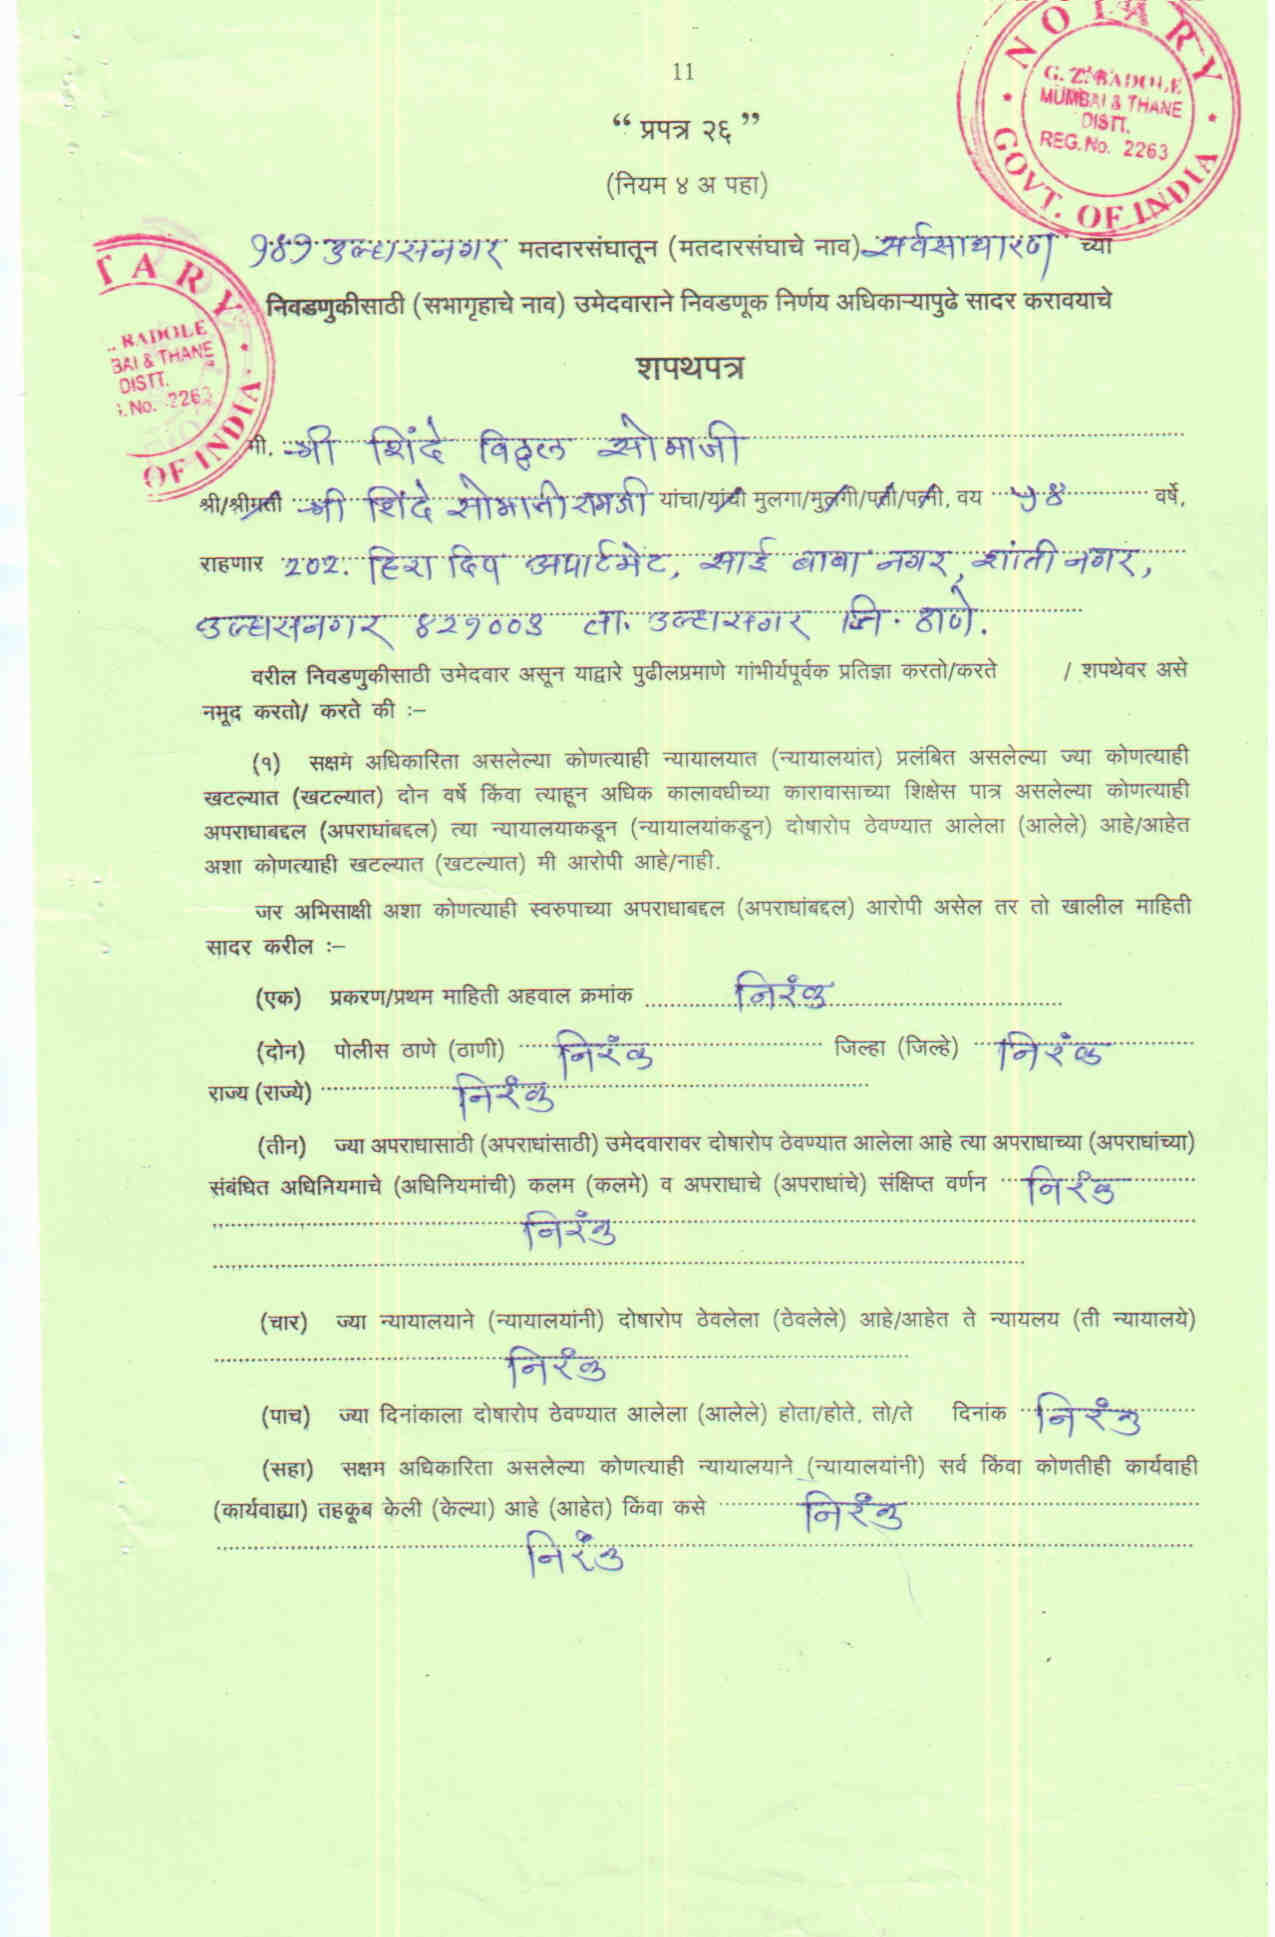 11
“ प्रपत्र २६ ”
(नियम ४ अ पहा)
NOTARY
G. Z. BADOLE
MUMBAI & THANE
DISTT.
REG. No. 2263
GOVT. OF INDIA
१४१ उल्हासनगर मतदारसंघातून (मतदारसंघाचे नाव) सर्वसाधारण च्या
निवडणुकीसाठी (सभागृहाचे नाव) उमेदवाराने निवडणूक निर्णय अधिकाऱ्यापुढे सादर करावयाचे
TARY
BADOLE
BAI & THANE
DISTT.
No. 2263
OF INDIA
शपथपत्र
मी. श्री शिंदे विठ्ठल सोमाजी
श्री/श्रीमती श्री शिंदे सोमाजी रामजी यांचा/यांची मुलगा/मुलगी/पती/पत्नी, वय ५४ वर्षे,
राहणार 202. हिरा दिप अपार्टमेंट, साई बाबा नगर, शांती नगर,
उल्हासनगर ४२१००३ ता. उल्हासगर जि. ठाणे.
वरील निवडणुकीसाठी उमेदवार असून याद्वारे पुढीलप्रमाणे गांभीर्यपूर्वक प्रतिज्ञा करतो/करते / शपथेवर असे
नमूद करतो/ करते की :–
(१) सक्षम अधिकारिता असलेल्या कोणत्याही न्यायालयात (न्यायालयांत) प्रलंबित असलेल्या ज्या कोणत्याही
खटल्यात (खटल्यात) दोन वर्षे किंवा त्याहून अधिक कालावधीच्या कारावासाच्या शिक्षेस पात्र असलेल्या कोणत्याही
अपराधाबद्दल (अपराधांबद्दल) त्या न्यायालयाकडून (न्यायालयांकडून) दोषारोप ठेवण्यात आलेला (आलेले) आहे/आहेत
अशा कोणत्याही खटल्यात (खटल्यात) मी आरोपी आहे/नाही.
जर अभिसाक्षी अशा कोणत्याही स्वरुपाच्या अपराधाबद्दल (अपराधांबद्दल) आरोपी असेल तर तो खालील माहिती
सादर करील :–
(एक) प्रकरण/प्रथम माहिती अहवाल क्रमांक निरंक
(दोन) पोलीस ठाणे (ठाणी) निरंक जिल्हा (जिल्हे) निरंक
राज्य (राज्ये) निरंक
(तीन) ज्या अपराधासाठी (अपराधांसाठी) उमेदवारावर दोषारोप ठेवण्यात आलेला आहे त्या अपराधाच्या (अपराधांच्या)
संबंधित अधिनियमाचे (अधिनियमांची) कलम (कलमे) व अपराधाचे (अपराधांचे) संक्षिप्त वर्णन निरंक
निरंक
(चार) ज्या न्यायालयाने (न्यायालयांनी) दोषारोप ठेवलेला (ठेवलेले) आहे/आहेत ते न्यायलय (ती न्यायालये)
निरंक
(पाच) ज्या दिनांकाला दोषारोप ठेवण्यात आलेला (आलेले) होता/होते. तो/ते दिनांक निरंक
(सहा) सक्षम अधिकारिता असलेल्या कोणत्याही न्यायालयाने (न्यायालयांनी) सर्व किंवा कोणतीही कार्यवाही
(कार्यवाह्या) तहकूब केली (केल्या) आहे (आहेत) किंवा कसे निरंक
निरंक